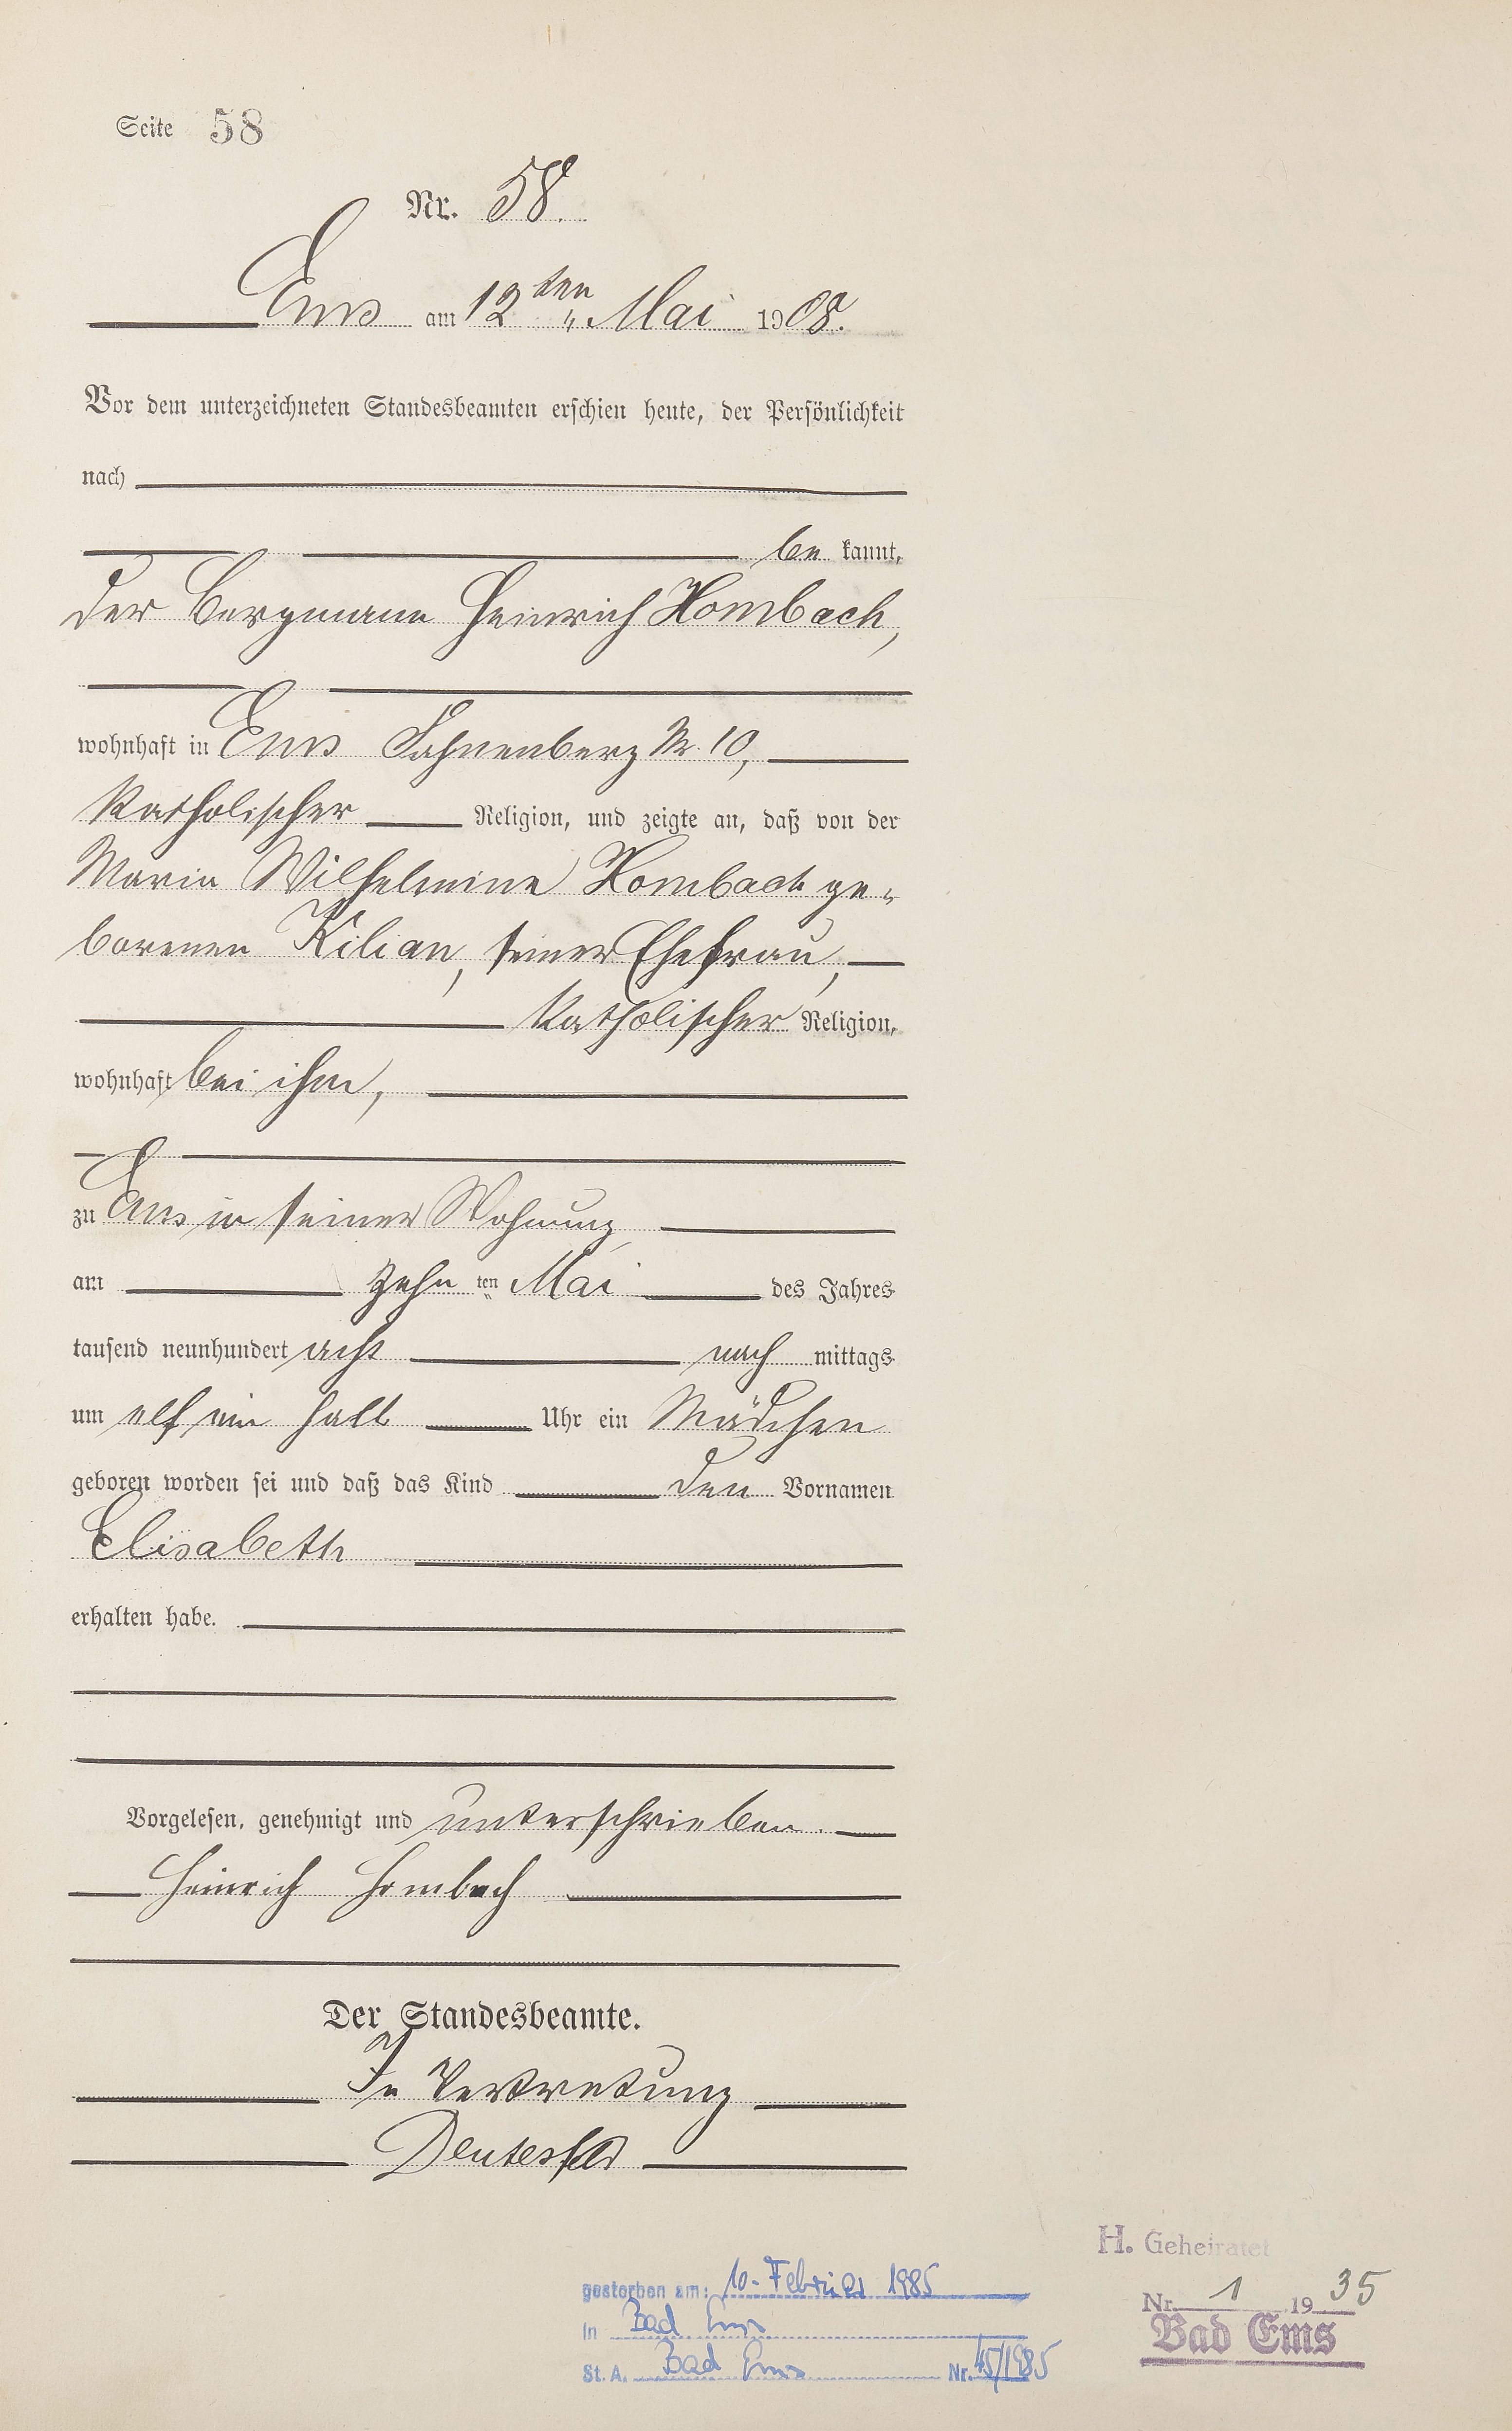 Seite 58
Nr. 58.
Ems am 12ten „ Mai 1908.
Vor dem unterzeichneten Standesbeamten erschien heute, der Persönlichkeit
nach
be kannt,
der Bergmann Heinrich Hombach,
wohnhaft in Ems Fahnenberg Nr. 10,
katholischer Religion, und zeigte an, daß von der
Maria Wilhelmine Hombach ge-
borenen Kilian, seiner Ehefrau,
katholischer Religion,
wohnhaft bei ihm,
zu Ems in seiner Wohnung
am zehn ten Mai des Jahres
tausend neunhundert acht nach mittags
um elf ein halb Uhr ein Mädchen
geboren worden sei und daß das Kind den Vornamen
Elisabeth
erhalten habe.
Vorgelesen, genehmigt und unterschrieben.
Heinrich Hombach
Der Standesbeamte.
In Vertretung
H. Geheiratet
gestorben am: 10. Februar 1985
Nr. 1 1935
In Bad Ems
Bad Ems
St. A. Bad Ems Nr. 45/1985